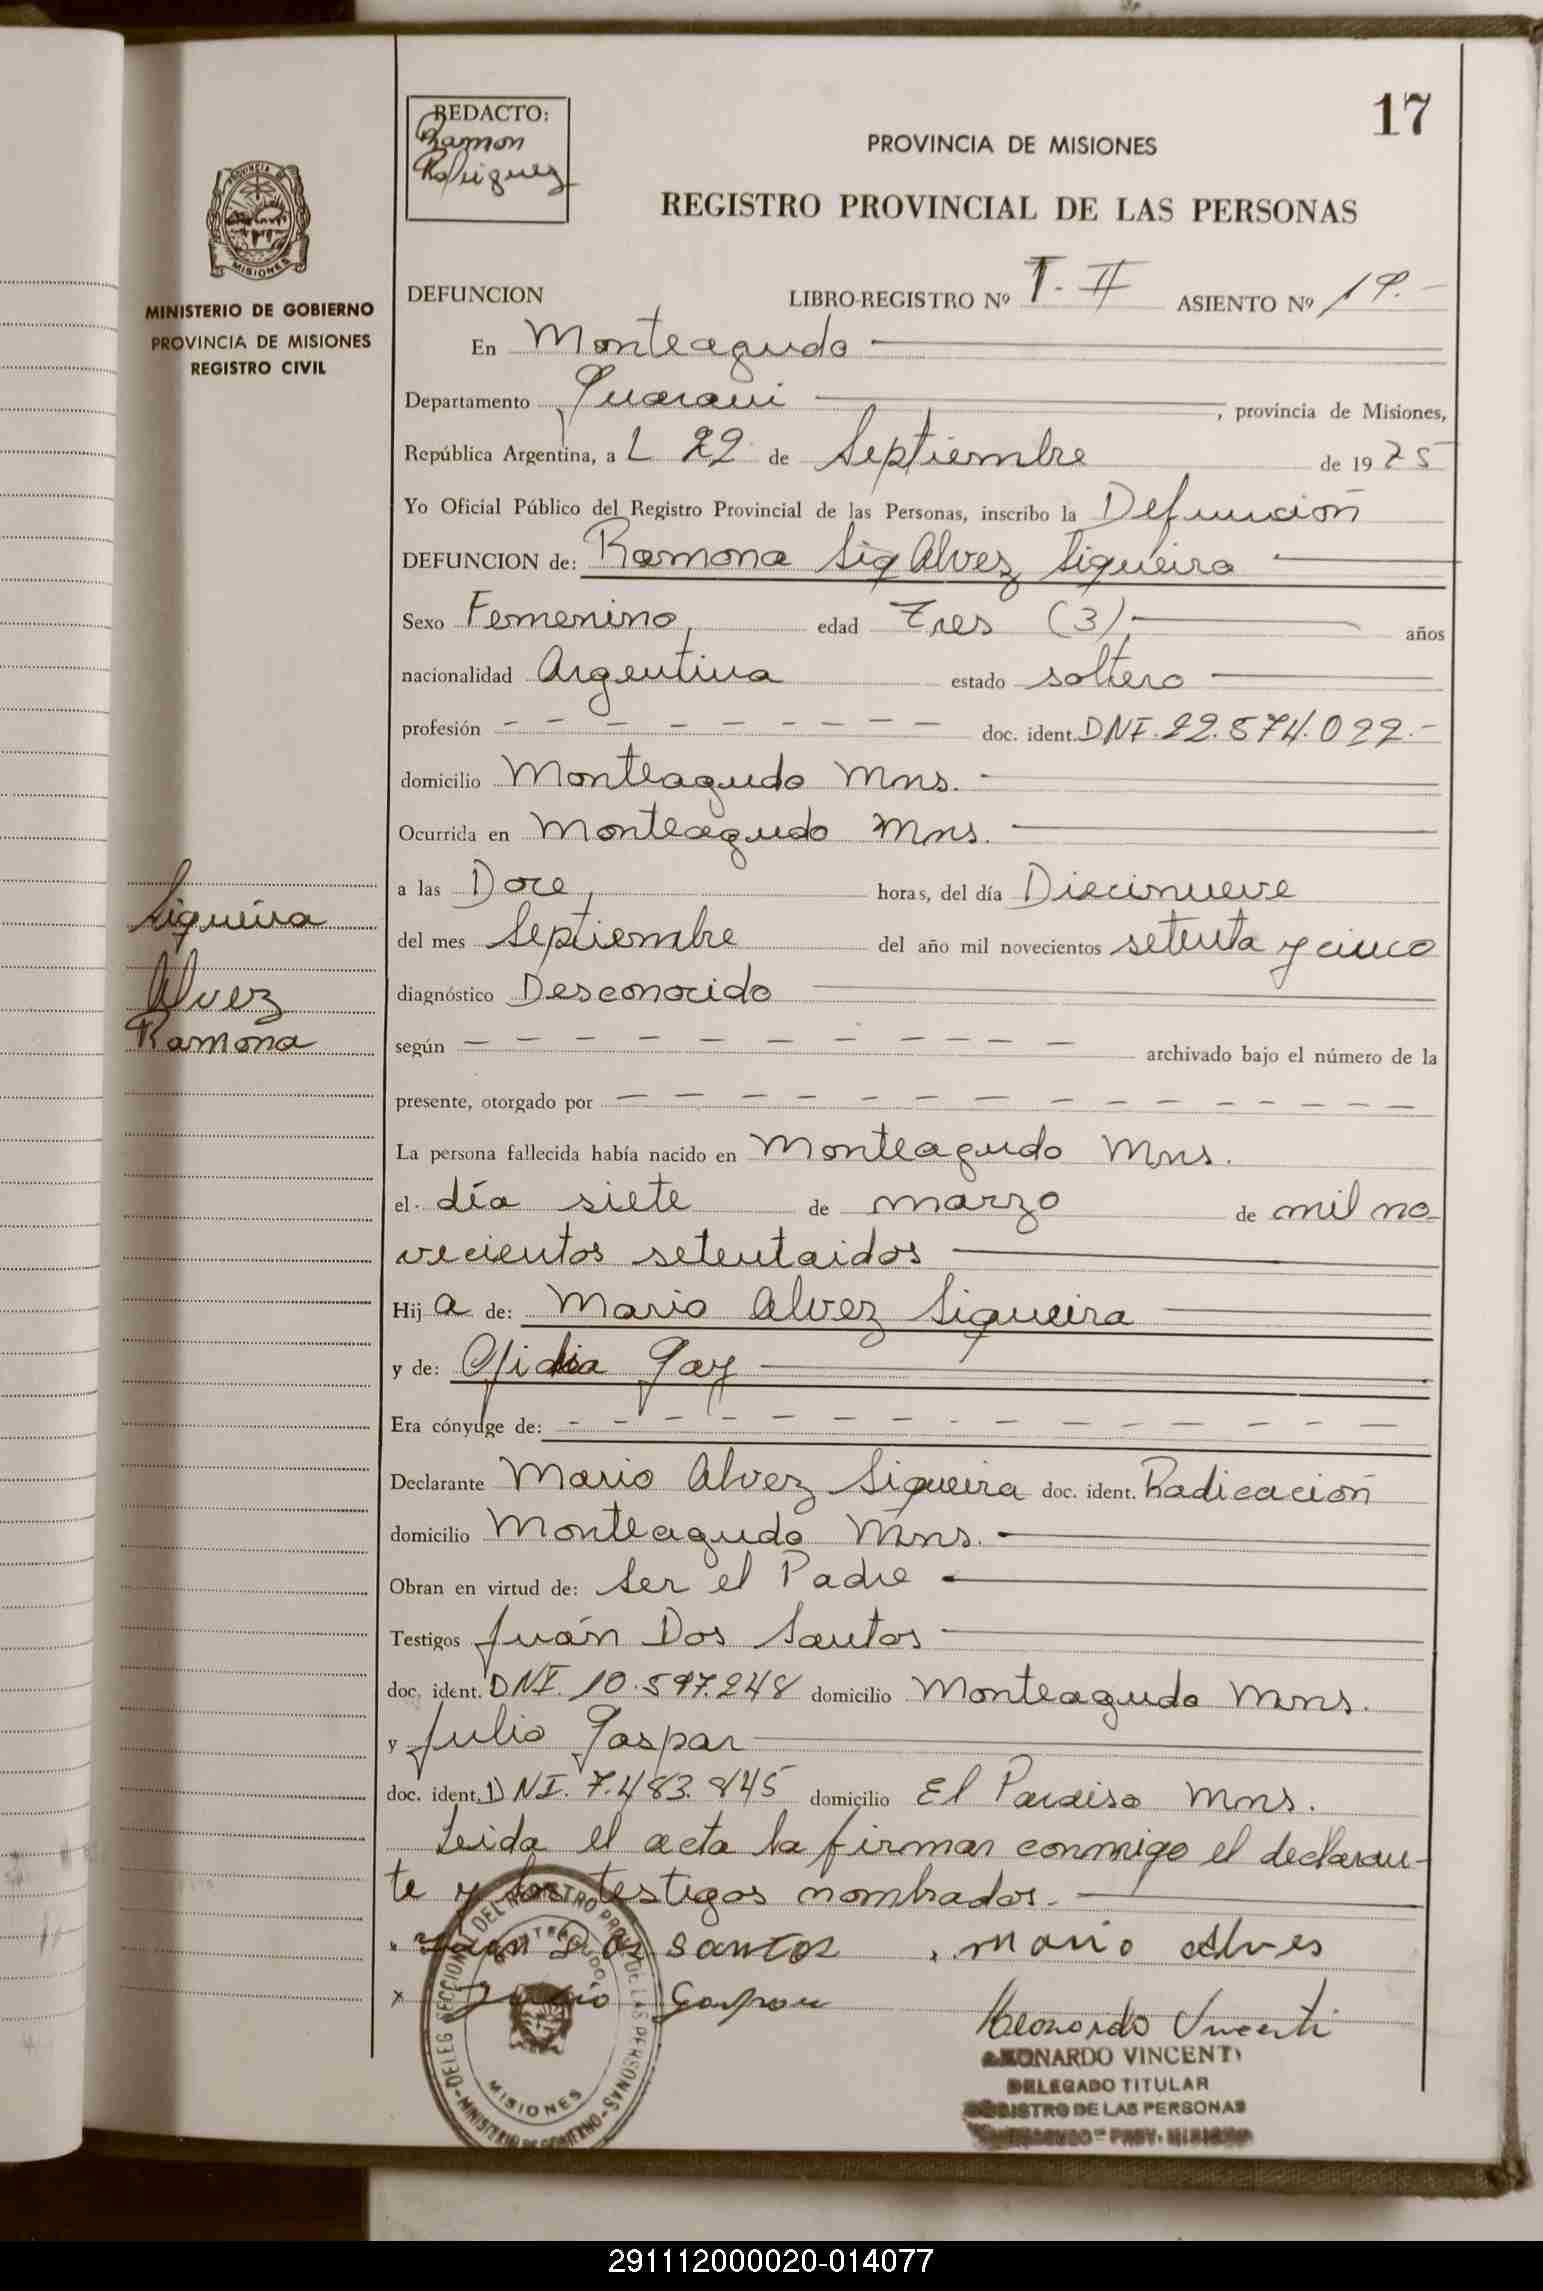 17
REDACTO:
Ramon
Rodriguez
PROVINCIA DE MISIONES
REGISTRO PROVINCIAL DE LAS PERSONAS
PROVINCIA DE
MISIONES
MINISTERIO DE GOBIERNO
PROVINCIA DE MISIONES
REGISTRO CIVIL
DEFUNCION LIBRO-REGISTRO Nº T. II ASIENTO Nº 19.-
En Monteagudo
Departamento Guarani, provincia de Misiones,
República Argentina, a L 22 de Septiembre de 1975
Yo Oficial Público del Registro Provincial de las Personas, inscribo la Defunción
DEFUNCION de: Ramona Siq Alvez Siqueira
Sexo Femenino, edad Tres (3), años
nacionalidad Argentina estado soltero
profesión - - - - - - - - - doc. ident. DNI. 22.574.022.-
domicilio Monteagudo Mns.
Ocurrida en Monteagudo Mns.
a las Doce, horas, del día Diecinueve
del mes Septiembre del año mil novecientos setenta y cinco
diagnóstico Desconocido
según - - - - - - - - - - - archivado bajo el número de la
presente, otorgado por - - - - - - - - - - - - - -
La persona fallecida había nacido en Monteagudo Mns.
el día siete de marzo de mil no-
vecientos setentaidos
Hij a de: Mario Alvez Siqueira
y de: Ofidia Gay
Era cónyuge de: - - - - - - - - - - - - - - - -
Declarante Mario Alvez Siqueira doc. ident. Radicación
domicilio Monteagudo Mns.
Obran en virtud de: Ser el Padre
Testigos Juán Dos Santos
doc. ident. DNI. 10.597.248 domicilio Monteagudo Mns.
y Julio Gaspar
doc. ident. DNI. 7.483.845 domicilio El Paraiso Mns.
Leida el acta la firman conmigo el declaran-
te y los testigos nombrados.-
Juan Dos santos . mario alves
x Julio Gaspar
Leonardo Vincenti
LEONARDO VINCENTI
DELEGADO TITULAR
REGISTRO DE LAS PERSONAS
Siqueira
Alvez
Ramona
MISIONES
291112000020-014077